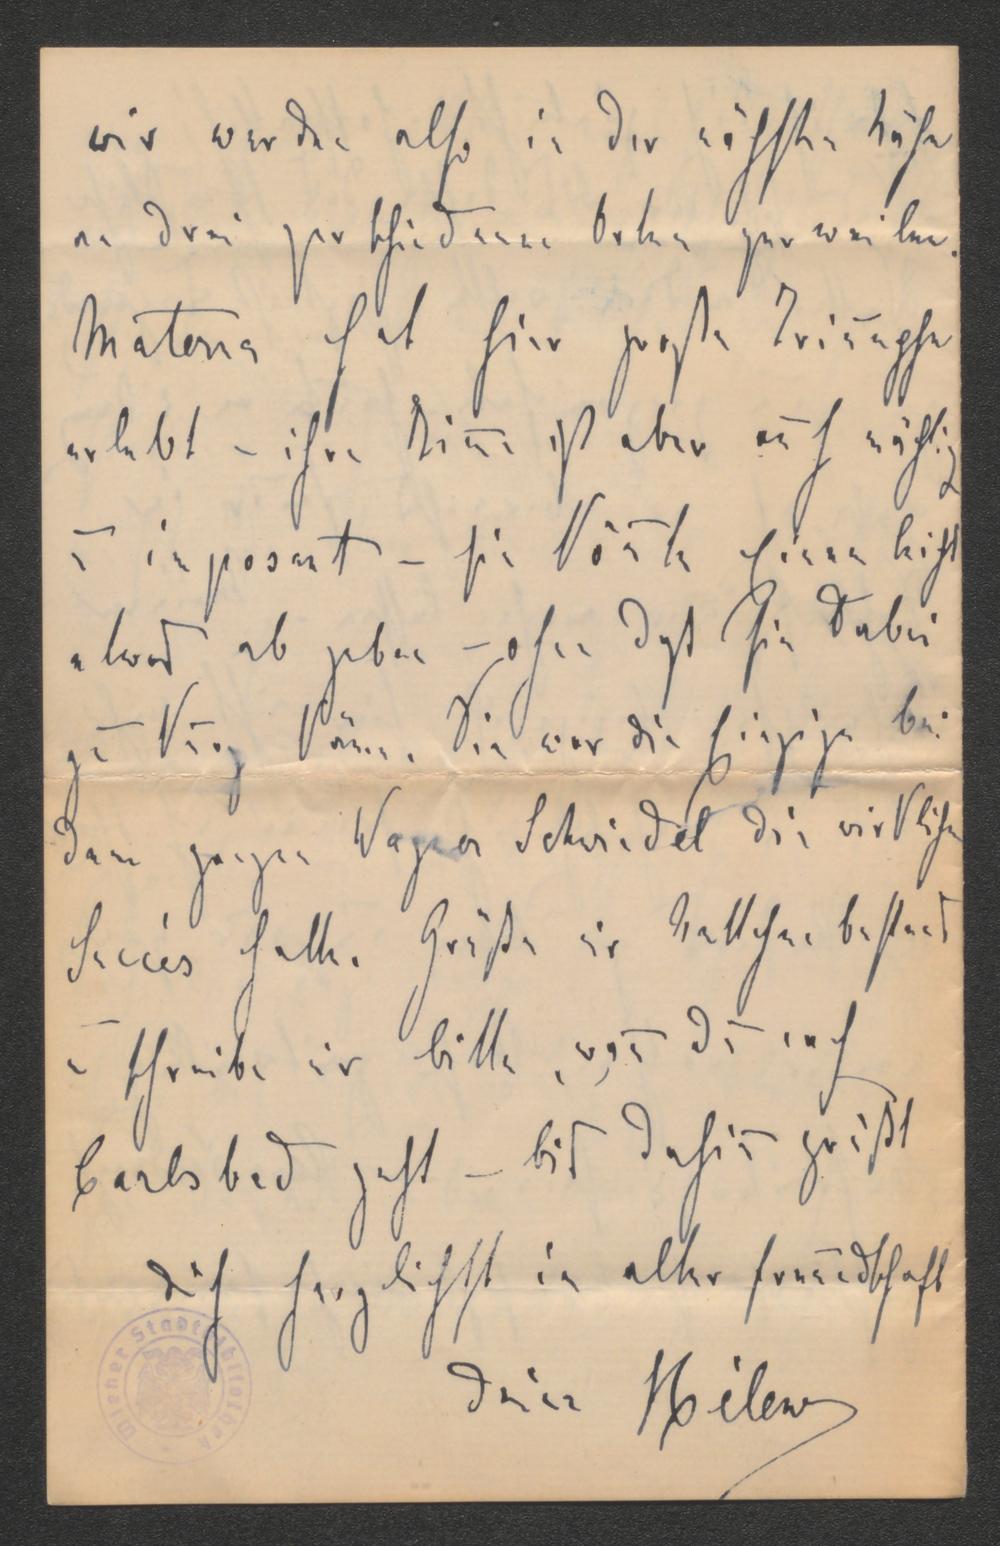 wir werden also in der nächsten Nähe
an drei verschiedenen Orten verweilen.
Materna hat hier große Triumphe
erlebt – ihre Stimme ist aber auch mächtig
u imposant – sie könnte Einen leicht
etwas ab geben – ohne daß sie dabei
zu kurz käme. Sie war die Einzige bei
dem ganzen Wagner Schwindel die wirklichen
Succès hatte. Grüße mir bestens
u schreibe mir bitte, wann Du nach
Carlsbad gehst – bis dahin grüßt
Dich herzlichst in alter Freundschaft
Deine Milenas
Wiener Stadtbibliothek